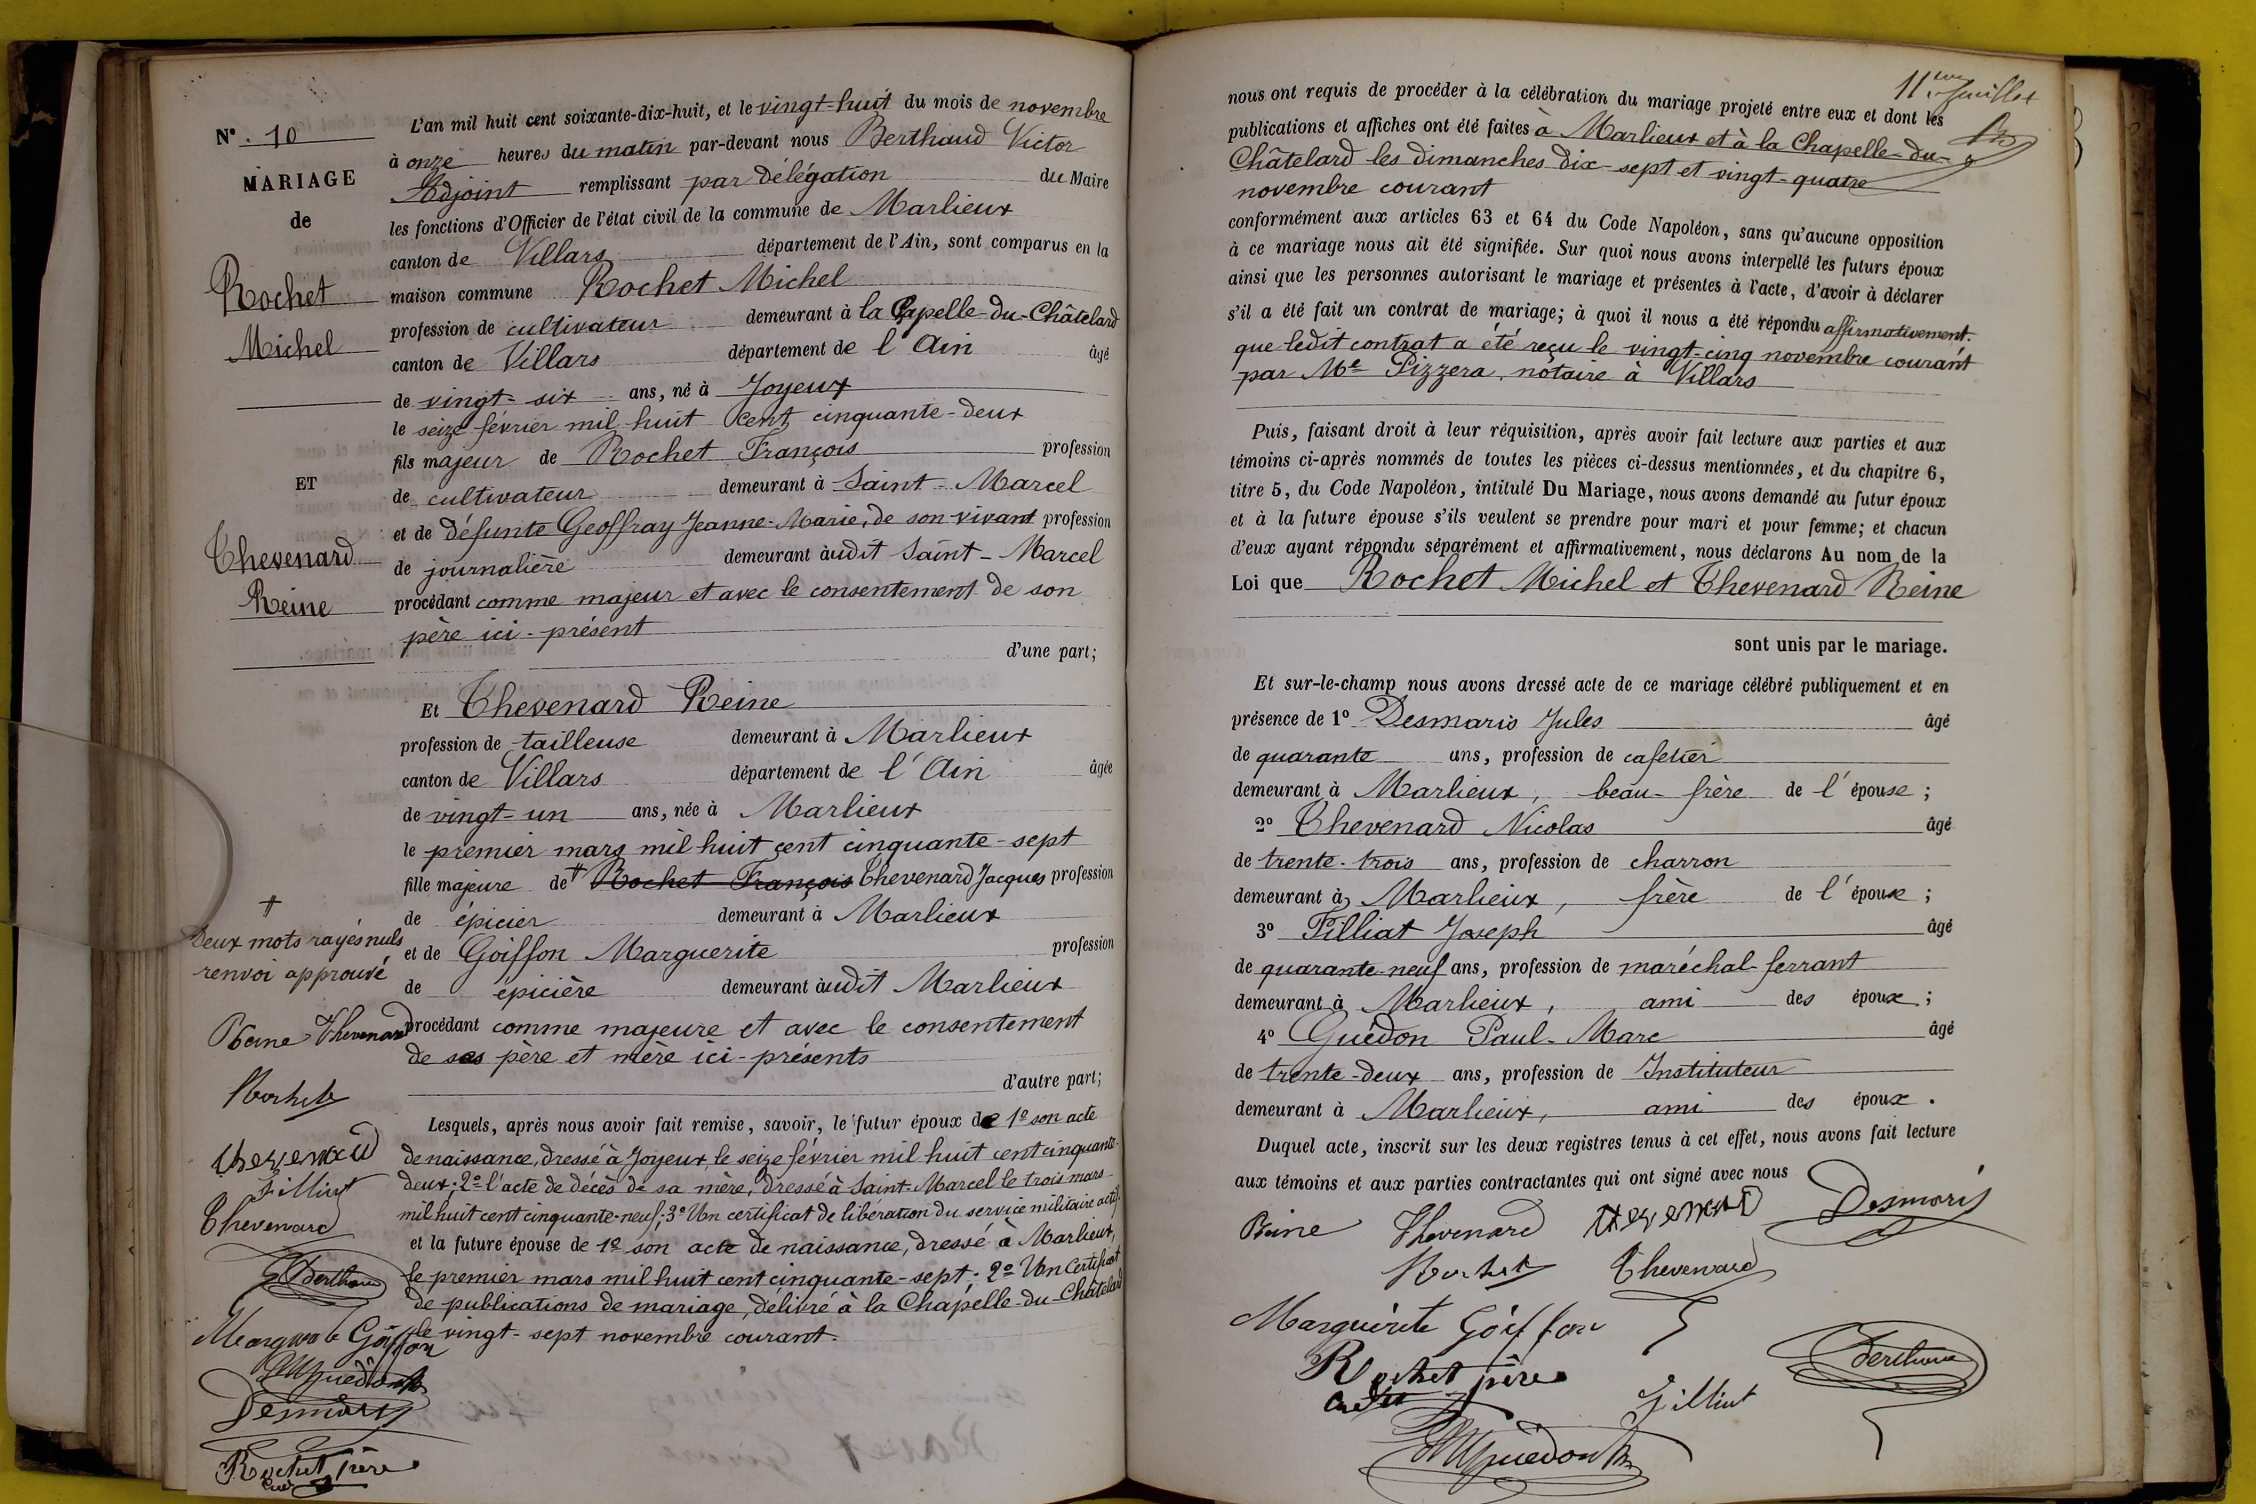 N° 10
MARIAGE
de
Rochet
Michel
ET
Thevenard
Reine
L'an mil huit cent soixante-dix-huit, et le vingt-huit du mois de novembre
à onze heures du matin par-devant nous Berthaud Victor
Adjoint remplissant par délégation du Maire
les fonctions d'Officier de l'état civil de la commune de Marlieux
canton de Villars département de l'Ain, sont comparus en la
maison commune Rochet Michel
profession de cultivateur demeurant à la Chapelle-du-Châtelard
canton de Villars département de l'Ain âgé
de vingt-six ans, né à Joyeux
le seize février mil huit cent cinquante-deux
fils majeur de Rochet François profession
de cultivateur demeurant à Saint-Marcel
et de défunte Geoffray Jeanne-Marie, de son vivant profession
de journalière demeurant audit Saint-Marcel
procédant comme majeur et avec le consentement de son
père ici-présent
d'une part;
Et Thevenard Reine
profession de tailleuse demeurant à Marlieux
canton de Villars département de l'Ain âgée
de vingt-un ans, née à Marlieux
le premier mars mil huit cent cinquante-sept
fille majeure de + Rochet François Thevenard Jacques profession
de épicier demeurant à Marlieux
et de Goiffon Marguerite profession
de épicière demeurant audit Marlieux
procédant comme majeure et avec le consentement
de ses père et mère ici-présents
d'autre part;
Lesquels, après nous avoir fait remise, savoir, le futur époux de 1° son acte
de naissance, dressé à Joyeux, le seize février mil huit cent cinquante-
deux; 2° l'acte de décès de sa mère, dressé à Saint-Marcel le trois mars
mil huit cent cinquante-neuf; 3° Un certificat de libération du service militaire actif.
et la future épouse de 1° son acte de naissance, dressé à Marlieux,
le premier mars mil huit cent cinquante-sept; 2° Un Certificat
de publications de mariage, délivré à la Chapelle-du-Châtelard
le vingt-sept novembre courant.
+
Deux mots rayés nuls
renvoi approuvé
Reine Thevenard
Rochet
Thevenard
Filliat
Thevenard
Berthaud
Marguerite Goiffon
Guédon
Desmaris
Rochet père
11eme feuillet
nous ont requis de procéder à la célébration du mariage projeté entre eux et dont les
publications et affiches ont été faites à Marlieux et à la Chapelle-du-
Châtelard les dimanches dix-sept et vingt-quatre
novembre courant
conformément aux articles 63 et 64 du Code Napoléon, sans qu'aucune opposition
à ce mariage nous ait été signifiée. Sur quoi nous avons interpellé les futurs époux
ainsi que les personnes autorisant le mariage et présentes à l'acte, d'avoir à déclarer
s'il a été fait un contrat de mariage; à quoi il nous a été répondu affirmativement.
que ledit contrat a été reçu le vingt-cinq novembre courant
par Me Pizzera, notaire à Villars
Puis, faisant droit à leur réquisition, après avoir fait lecture aux parties et aux
témoins ci-après nommés de toutes les pièces ci-dessus mentionnées, et du chapitre 6,
titre 5, du Code Napoléon, intitulé Du Mariage, nous avons demandé au futur époux
et à la future épouse s'ils veulent se prendre pour mari et pour femme; et chacun
d'eux ayant répondu séparément et affirmativement, nous déclarons Au nom de la
Loi que Rochet Michel et Thevenard Reine
sont unis par le mariage.
Et sur-le-champ nous avons dressé acte de ce mariage célébré publiquement et en
présence de 1° Desmaris Jules âgé
de quarante ans, profession de cafetier
demeurant à Marlieux, beau-frère de l'épouse;
2° Thevenard Nicolas âgé
de trente-trois ans, profession de charron
demeurant à Marlieux, frère de l'épouse;
3° Filliat Joseph âgé
de quarante-neuf ans, profession de maréchal-ferrant
demeurant à Marlieux, ami des époux;
4° Guédon Paul-Marc âgé
de trente-deux ans, profession de Instituteur
demeurant à Marlieux, ami des époux.
Duquel acte, inscrit sur les deux registres tenus à cet effet, nous avons fait lecture
aux témoins et aux parties contractantes qui ont signé avec nous
Reine Thevenard Thevenard Desmaris
Rochet Thevenard
Marguerite Goiffon
Rochet père
Berthaud
Filliat
Guédon